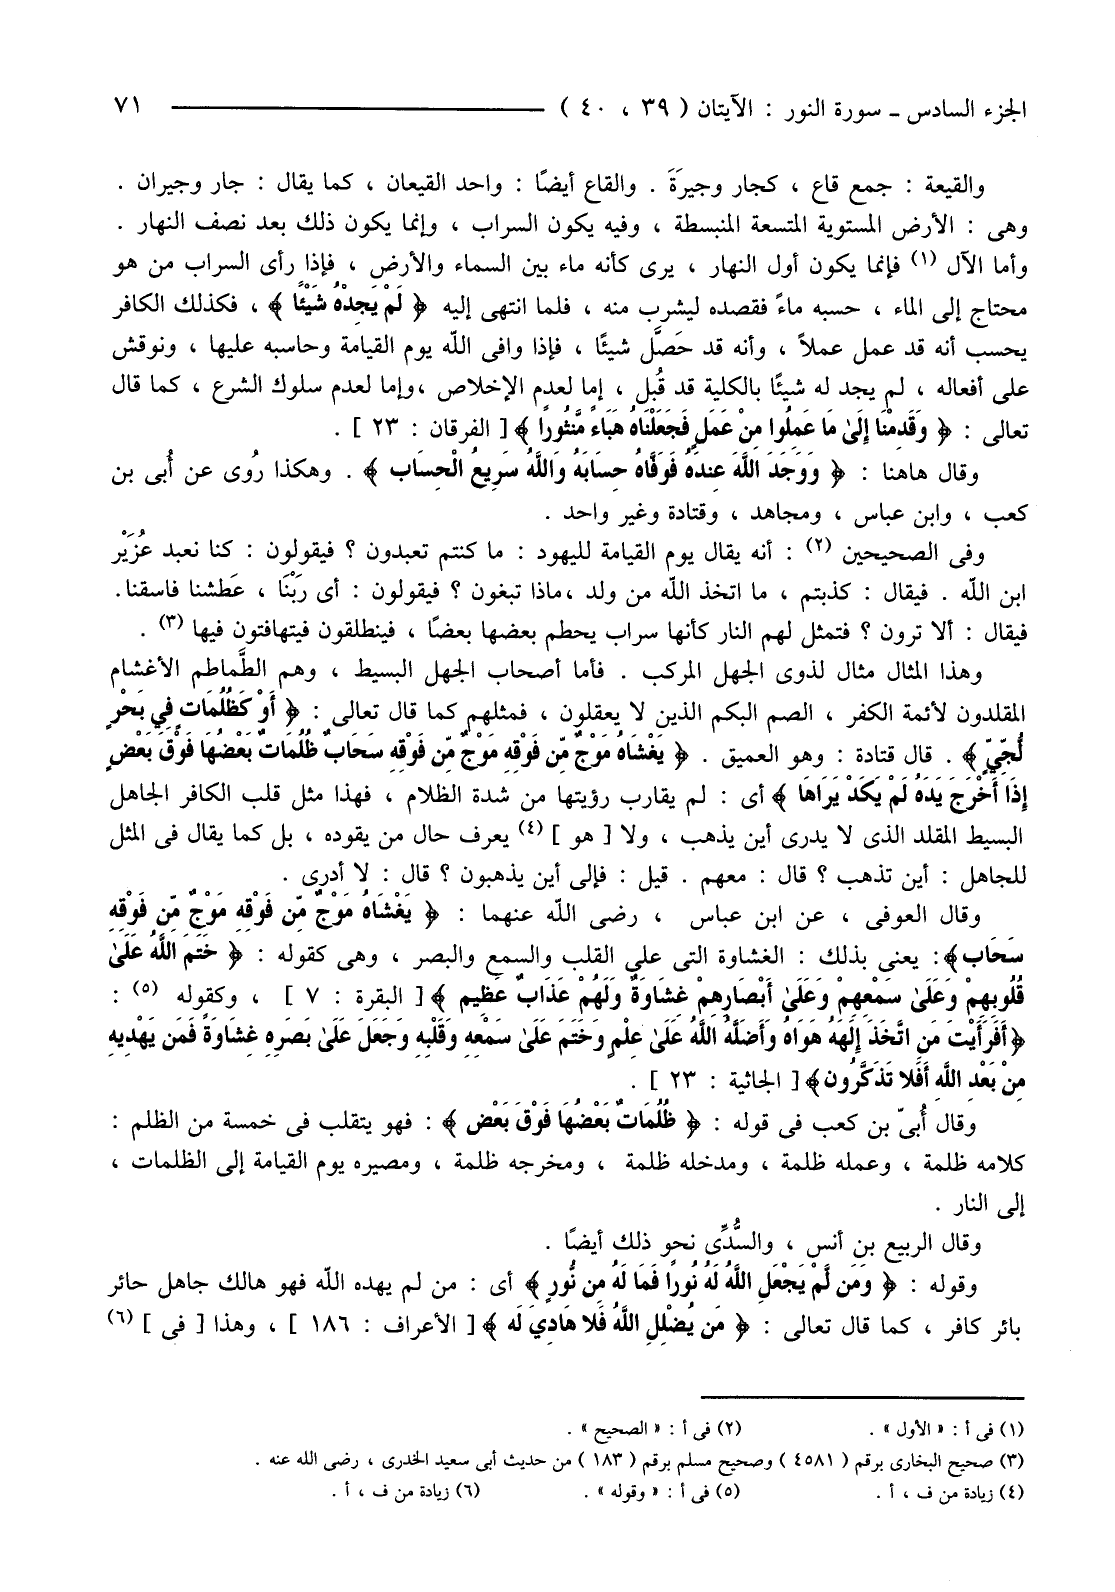 الجزء السادس ـ سورة النور : الآيتان ( ٣٩ ، ٤٠ ) ٧١
والقيعة : جمع قاع ، كجار وجيرَةَ . والقاع أيضًا : واحد القيعان ، كما يقال : جار وجيران .
وهى : الأرض المستوية المتسعة المنبسطة ، وفيه يكون السراب ، وإنما يكون ذلك بعد نصف النهار .
وأما الآل (١) فإنما يكون أول النهار ، يرى كأنه ماء بين السماء والأرض ، فإذا رأى السراب من هو
محتاج إلى الماء ، حسبه ماءً فقصده ليشرب منه ، فلما انتهى إليه ﴿ لَمْ يَجِدْهُ شَيْئًا ﴾ ، فكذلك الكافر
يحسب أنه قد عمل عملاً ، وأنه قد حَصَّل شيئًا ، فإذا وافى اللّه يوم القيامة وحاسبه عليها ، ونوقش
على أفعاله ، لم يجد له شيئًا بالكلية قد قُبل ، إما لعدم الإخلاص ،وإما لعدم سلوك الشرع ، كما قال
تعالى : ﴿ وَقَدِمْنَا إِلَىٰ مَا عَمِلُوا مِنْ عَمَلٍ فَجَعَلْنَاهُ هَبَاءً مَّنثُورًا ﴾ [ الفرقان : ٢٣ ] .
وقال هاهنا : ﴿ وَوَجَدَ اللَّهَ عِندَهُ فَوَفَّاهُ حِسَابَهُ وَاللَّهُ سَرِيعُ الْحِسَابِ ﴾ . وهكذا رُوى عن أُبى بن
كعب ، وابن عباس ، ومجاهد ، وقتادة وغير واحد .
وفى الصحيحين (٢) : أنه يقال يوم القيامة لليهود : ما كنتم تعبدون ؟ فيقولون : كنا نعبد عُزَيْر
ابن اللّه . فيقال : كذبتم ، ما اتخذ اللّه من ولد ،ماذا تبغون ؟ فيقولون : أى رَبَّنَا ، عَطشنا فاسقنا.
فيقال : ألا ترون ؟ فتمثل لهم النار كأنها سراب يحطم بعضها بعضًا ، فينطلقون فيتهافتون فيها (٣) .
وهذا المثال مثال لذوى الجهل المركب . فأما أصحاب الجهل البسيط ، وهم الطَّماطم الأغشام
المقلدون لأئمة الكفر ، الصم البكم الذين لا يعقلون ، فمثلهم كما قال تعالى : ﴿ أَوْ كَظُلُمَاتٍ فِي بَحْرٍ
لُّجِّيٍّ ﴾ . قال قتادة : وهو العميق . ﴿ يَغْشَاهُ مَوْجٌ مِّن فَوْقِهِ مَوْجٌ مِّن فَوْقِهِ سَحَابٌ ظُلُمَاتٌ بَعْضُهَا فَوْقَ بَعْضٍ
إِذَا أَخْرَجَ يَدَهُ لَمْ يَكَدْ يَرَاهَا ﴾ أى : لم يقارب رؤيتها من شدة الظلام ، فهذا مثل قلب الكافر الجاهل
البسيط المقلد الذى لا يدرى أين يذهب ، ولا [ هو ] (٤) يعرف حال من يقوده ، بل كما يقال فى المثل
للجاهل : أين تذهب ؟ قال : معهم . قيل : فإلى أين يذهبون ؟ قال : لا أدرى .
وقال العوفى ، عن ابن عباس ، رضى اللّه عنهما : ﴿ يَغْشَاهُ مَوْجٌ مِّن فَوْقِهِ مَوْجٌ مِّن فَوْقِهِ
سَحَابٌ ﴾: يعنى بذلك : الغشاوة التى على القلب والسمع والبصر ، وهى كقوله : ﴿ خَتَمَ اللَّهُ عَلَىٰ
قُلُوبِهِمْ وَعَلَىٰ سَمْعِهِمْ وَعَلَىٰ أَبْصَارِهِمْ غِشَاوَةٌ وَلَهُمْ عَذَابٌ عَظِيمٌ ﴾ [ البقرة : ٧ ] ، وكقوله (٥) :
﴿أَفَرَأَيْتَ مَنِ اتَّخَذَ إِلَهَهُ هَوَاهُ وَأَضَلَّهُ اللَّهُ عَلَىٰ عِلْمٍ وَخَتَمَ عَلَىٰ سَمْعِهِ وَقَلْبِهِ وَجَعَلَ عَلَىٰ بَصَرِهِ غِشَاوَةً فَمَن يَهْدِيهِ
مِنْ بَعْدِ اللَّهِ أَفَلا تَذَكَّرُونَ﴾ [ الجاثية : ٢٣ ] .
وقال أُبىّ بن كعب فى قوله : ﴿ ظُلُمَاتٌ بَعْضُهَا فَوْقَ بَعْضٍ ﴾ : فهو يتقلب فى خمسة من الظلم :
كلامه ظلمة ، وعمله ظلمة ، ومدخله ظلمة ، ومخرجه ظلمة ، ومصيره يوم القيامة إلى الظلمات ،
إلى النار .
وقال الربيع بن أنس ، والسُّدِّى نحو ذلك أيضًا .
وقوله : ﴿ وَمَن لَّمْ يَجْعَلِ اللَّهُ لَهُ نُورًا فَمَا لَهُ مِن نُّورٍ ﴾ أى : من لم يهده اللّه فهو هالك جاهل حائر
بائر كافر ، كما قال تعالى : ﴿ مَن يُضْلِلِ اللَّهُ فَلا هَادِيَ لَه ﴾ [ الأعراف : ١٨٦ ] ، وهذا [ فى ] (٦)
(١) فى أ : « الأول » . (٢) فى أ : « الصحيح » .
(٣) صحيح البخارى برقم ( ٤٥٨١ ) وصحيح مسلم برقم ( ١٨٣ ) من حديث أبى سعيد الخدرى ، رضى الله عنه .
(٤) زيادة من ف ، أ . (٥) فى أ : « وقوله » . (٦) زيادة من ف ، أ .